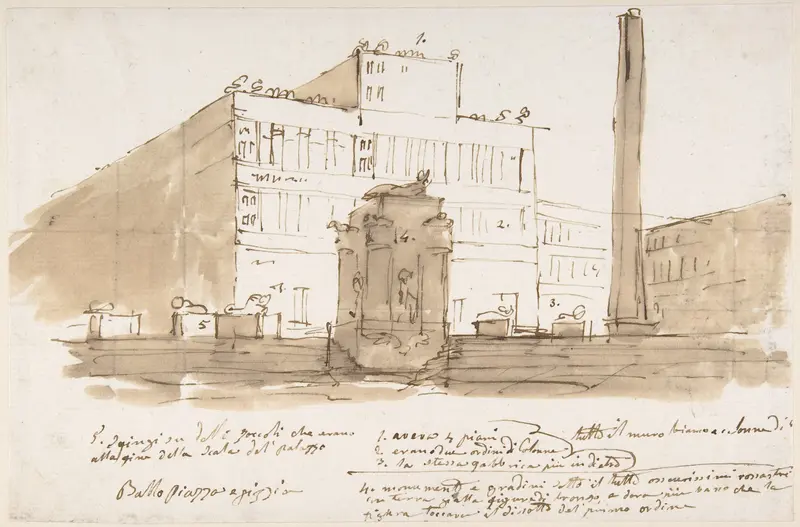 1.
2.
3.
4.
5
5. Sfingi su delli zoccoli che erano
alla fine della Scala del palazzo
Ballo Piazza egizia
1. aveva 4 piani
2. erano due ordini di Colonne
3. la stessa fabbrica più indietro
tutto il muro bianco e colonne di
4. monumento e gradini sotto il tutto oscurissimi rossastri
in terra gialla figure di bronzo e dora più vano che la
figura toccava al disotto del primo ordine